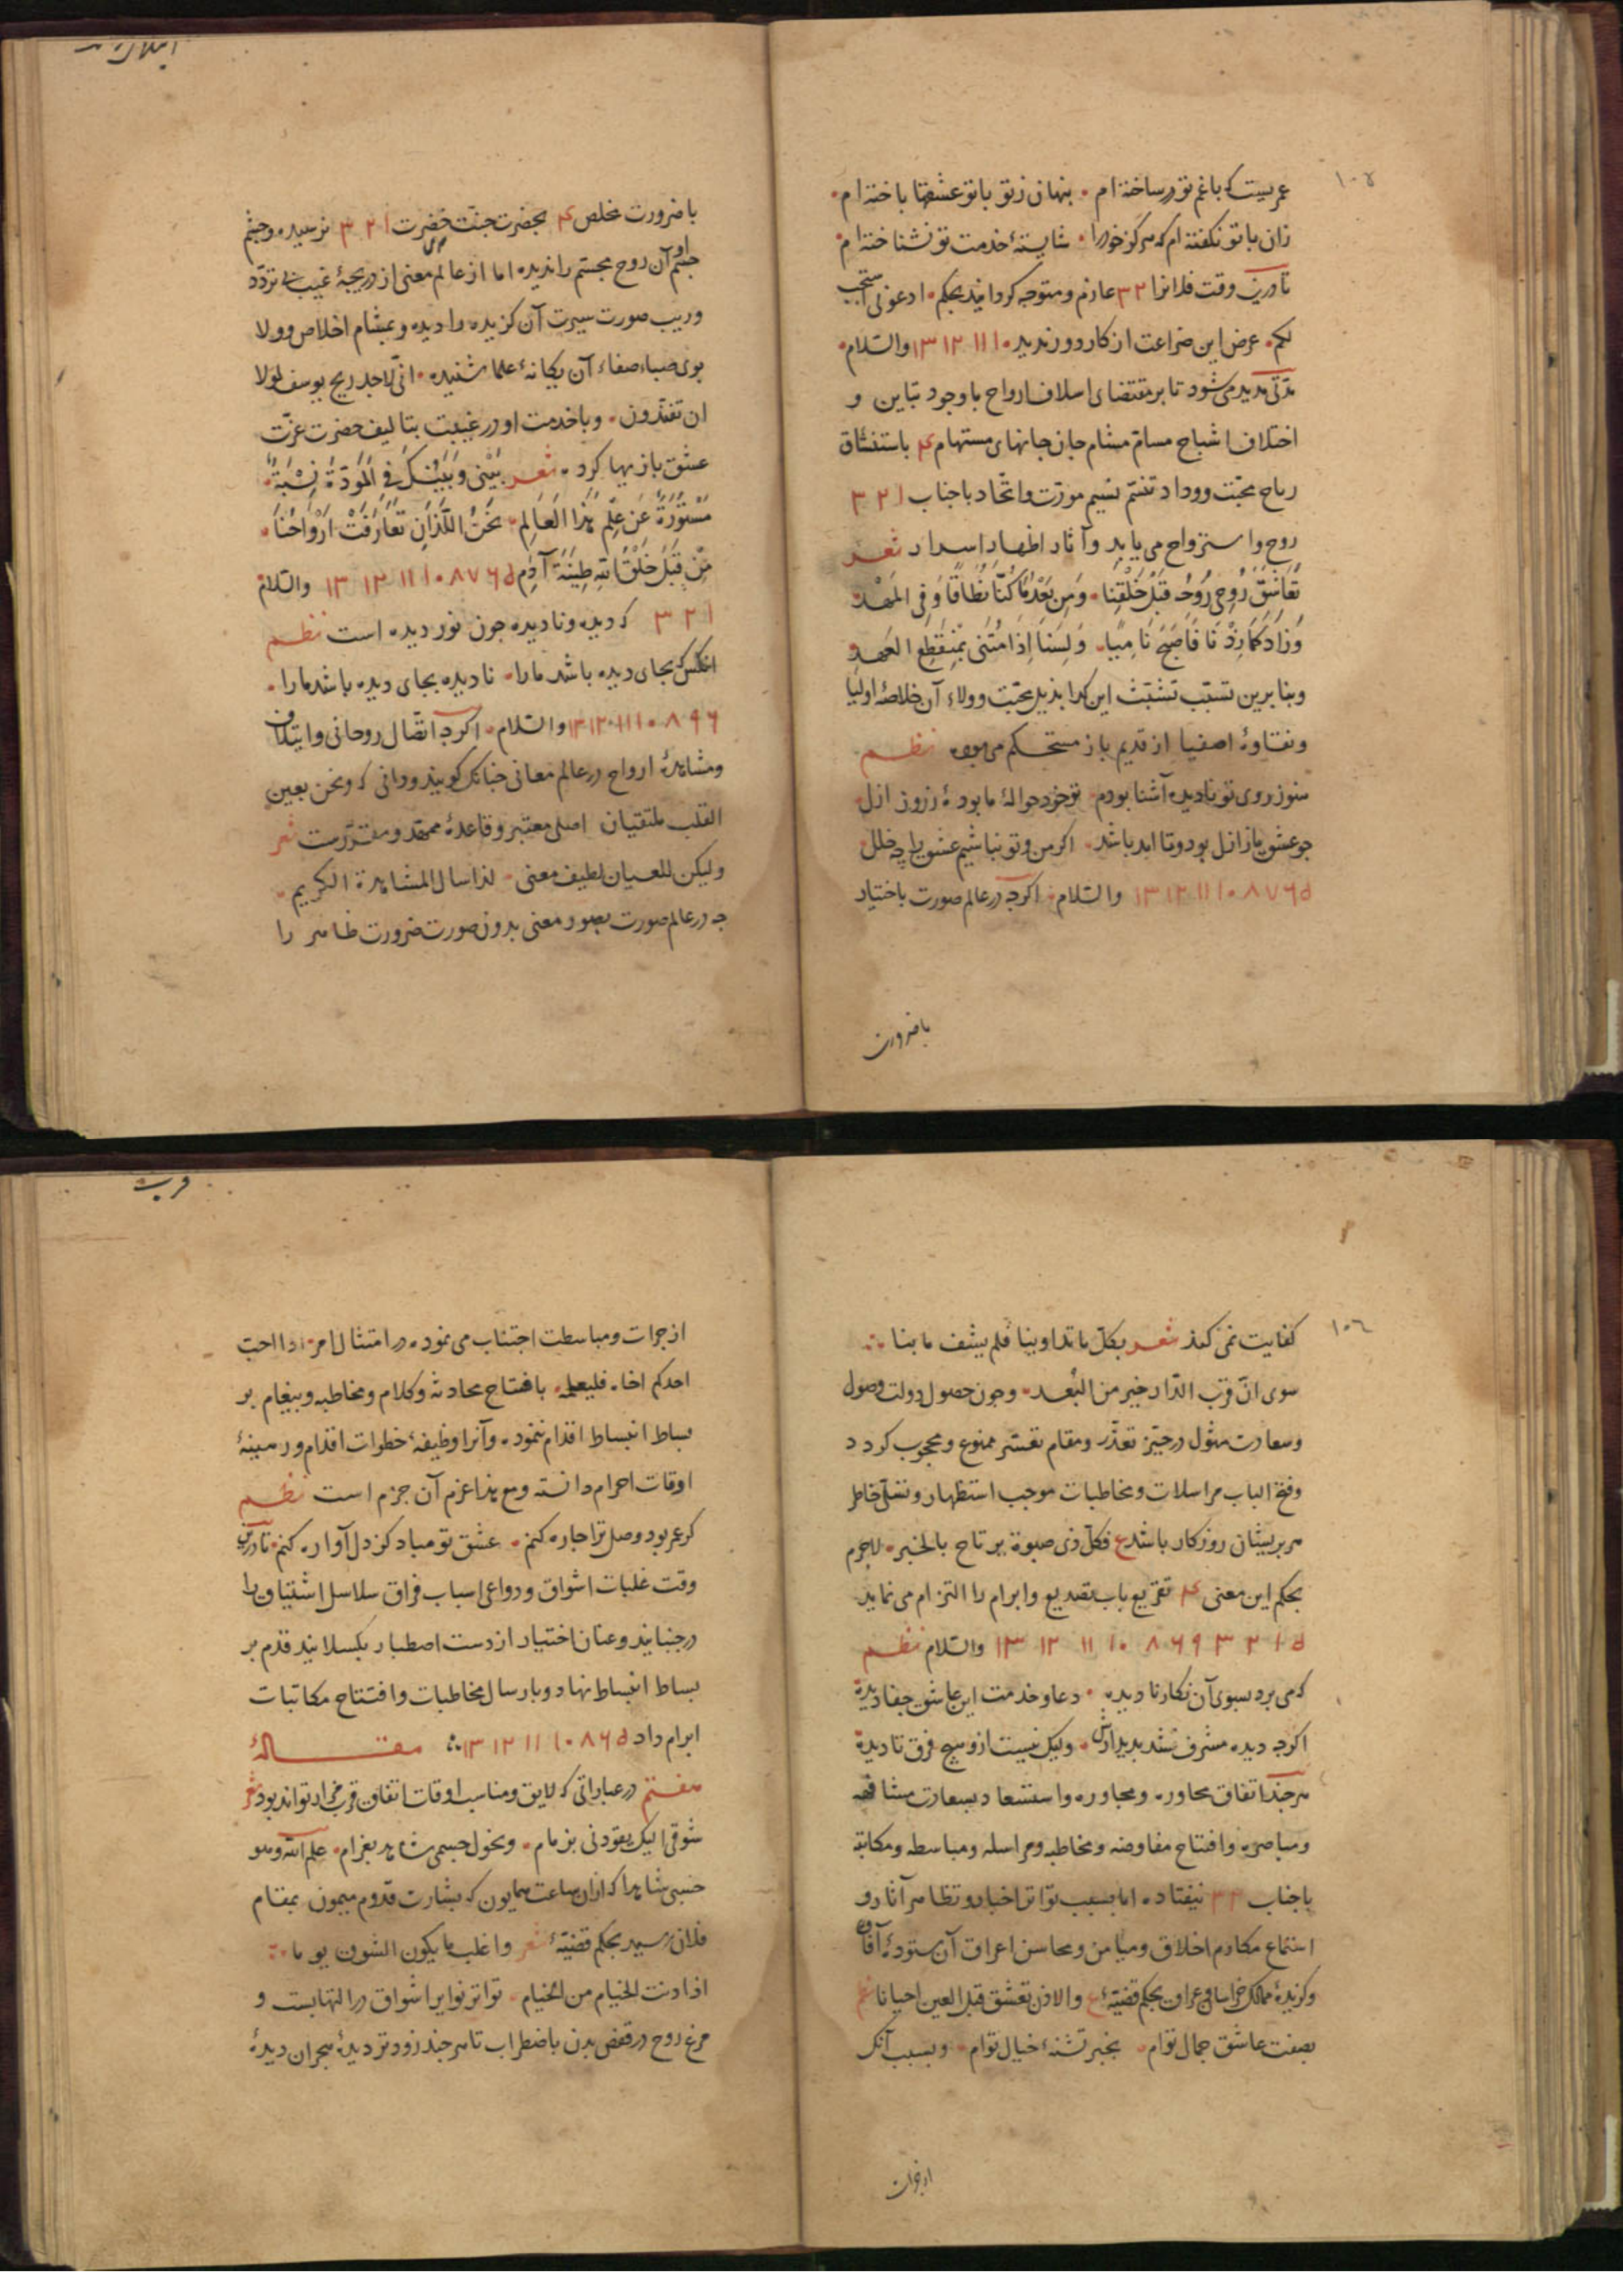 ١٠٥
عمریست که با غم تو در ساخته ام • پنهان ز تو با تو عشقها باخته ام •
زان با تو نکفته ام که هرکز خود را • شایستهٔ خدمت تو نشناخته ام •
تا درین وقت فلانرا ٣٢ عازم و متوجه کردانید بحکم • ادعونی استجب
لکم • عرض این ضراعت از کار دور ندید • ١٠ ١١ ١٢ ١٣ والسّلام •
مدّتی مدید می شود تا بر مقتضای اسلاف ارواح با وجود تباین و
اختلاف اشباح مسامّ مشام جان جانهای مستهام ٤ باستنشاق
ریاح محبّت و وداد تنسّم نسیم مودّت و اتّحاد با جناب ١ ٢ ٣
روح و استرواح می یابد و آثار اظهار اسرار شعر
تَعَاشَقَ رُوحِی رُوحَهُ قَبْلَ خَلْقِنَا • وَمِن بَعْدِ مَا كُنَّا نُطَافًا وَفِی المَهْدِ •
وَزَادَ كَمَا زِدْنَا فَاَصْبَحَ نَامِيًا • وَلَسْنَا اِذَا مُتْنَا بِمُنْقَطِعِ العَهْدِ •
و بنا برین تسبّب تشبّث این کدا بذیل محبّت و ولاء آن خلاصهٔ اولیا
و نقاوهٔ اصفیا از قدیم باز مستحکم می بود نظم
هنوز روی تو نادیده آشنا بودم • تو خود حوالهٔ ما بودهٔ ز روز ازل •
جو عشق باز ازل بود و تا ابد باشد • اکر من و تو نباشیم عشق را چه خلل •
٥ ٦ ٧ ٨ ١٠ ١١ ١٢ ١٣ والسّلام • اکرچه در عالم صورت باختیار
با ضرورت
با ضرورت مخلص ٤ بحضرت جنّت خضرت ١ ٢ ٣ نرسیده و چشم
جسم او آن روح مجسّم را ندیده اما از عالم معنی از دریجهٔ غیب بی تردّد
و ریب صورت سیرت آن کزیده را دیده و بمشام اخلاص و ولا
بوی صباء صفاء آن یکانهٔ علما شنیده • انّی لاجد ریح یوسف لولا
ان تفنّدون • و با خدمت او در غیبت بتالیف حضرت عزّت
عشق بازیها کرده شعر بَيْنِی وَبَيْنَكَ فِی الْمَوَدَّةِ نِسْبَةٌ •
مَسْتُورَةٌ عَن عِلْمِ هٰذَا العَالَمِ • نَحْنُ اللَّذَانِ تَعَارَفَتْ اَرْوَاحُنَا •
مِنْ قَبْلِ خَلْقِ اللهِ طِينَةَ آدَمِ ٥ ٦ ٧ ٨ ١٠ ١١ ١٢ ١٣ والسّلام
١ ٢ ٣ که دیده و نادیده جون نور دیده است نظم
انکس که بجای دیده باشد ما را • نادیده بجای دیده باشد ما را •
٦ ٩ ٨ ١٠ ١١ ١٢ ١٣ والسّلام • اکرچه اتّصال روحانی و ایتلاف
و مشاهدهٔ ارواح در عالم معانی جنانک کویند ودانی که ونحن بعین
القلب ملتقیان اصلی معتبر و قاعدهٔ ممهّد و مقرّرست شعر
ولیکن للعیان لطیف معنی • لذا سال المشاهدة الکریم •
چه در عالم صورت بصور معنی بدون صورت ضرورت ظاهر را
١٠٦
کفایت نمی کند شعر بکلّ ما تداوینا فلم یشف ما بنا
سوی انّ قرب الدّار خیر من البُعد • و جون حصول دولت وصول
و سعادت مثول در حیّز تعذّر و مقام تعسّر ممنوع و محجوب کردد
و فتح الباب مراسلات و مخاطبات موجب استظهار و تسلّی خاطر
هر پریشان روزکار باشد ع فکلّ ذی صبوة یرتاح بالخبر • لاجرم
بحکم این معنی ٤ تقریع باب تصدیع و ابرام را التزام می نماید
٥ ١ ٢ ٣ ٩ ٦ ٨ ١٠ ١١ ١٢ ١٣ والسّلام نظم
که می برد بسوی آن نکار نادیده • دعا و خدمت این عاشق جفا دیده
اکرچه دیده مشرف نشد بدیدارش • ولیک نیست ازو هیچ فرق تا دیده
هرچند اتفاق محاوره و مجاوره و استسعاد بسعادت مشافهه
و مباصره و افتتاح مفاوضه و مخاطبه و مراسله و مباسطه و مکاتبه
با جناب ٢ ٣ نیفتاده اما بسبب تواتر اخبار و تظاهر آثار و
استماع مکارم اخلاق و میامن و محاسن اعراق آن ستودهٔ آفاق
و کزیدهٔ ممالک خراسان و عراق بحکم قضیّهٔ ع والاذن تعشق قبل العین احیانا
بصفت عاشق جمال توام • بخبر تشنهٔ خیال توام • و بسبب آنک
از جرات
از جرات و مباسطت اجتناب می نموده در امتثال امر • اذا احبّ
احدکم اخاه فلیعلمه • بافتتاح محادثه و کلام و مخاطبه و پیغام بر
بساط انبساط اقدام ننموده و آنرا وظیفهٔ خطوات اقدام و رهینهٔ
اوقات احرام دانسته و مع هذا عزم آن جزم است نظم
کر عمر بود وصل ترا چاره کنم • عشق تو مباد کز دل آواره کنم • تا درین
وقت غلبات اشواق و دواعی اسباب فراق سلاسل اشتیاق را
در جنبانید و عنان اختیار از دست اصطبار بکسلانید قدم بر
بساط انبساط نهاد و بارسال مخاطبات و افتتاح مکاتبات
ابرام داد ٥ ٦ ٨ ١٠ ١١ ١٢ ١٣ مقالهٔ
هفتم در عباراتی که لایق و مناسب اوقات اتفاق قرب مزار تواند بود شعر
شوقی الیک یقودنی بزمام • ونحول جسمی شاهد بغرام • علم الله وهو
حسبی شاهدا که از ان ساعت همایون که بشارت قدوم میمون بمقام
فلان رسید بحکم قضیّهٔ شعر واغلب ما یکون الشوق یوما
اذا دنت الخیام من الخیام • تواتر نوایر اشواق در التهابست و
مرغ روح در قفص بدن باضطراب تا هرچند زودتر دیدهٔ هجران دیدهٔ